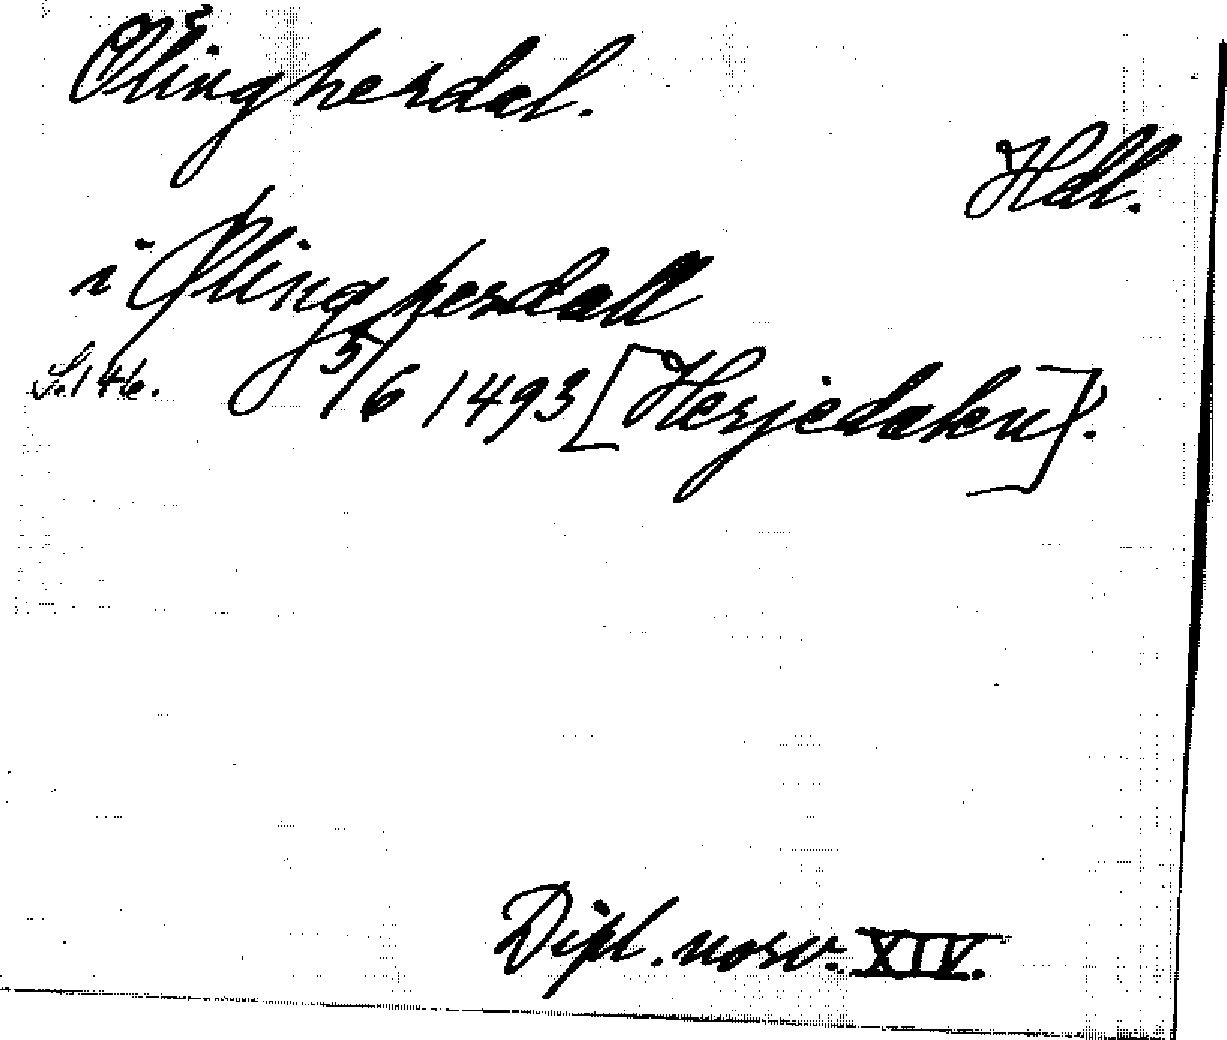 Ölingherdal.
Hdl.
i Ølingherdall
S. 146. 5/6 1493 [Herjedalen].
Dipl. norv. XIV.